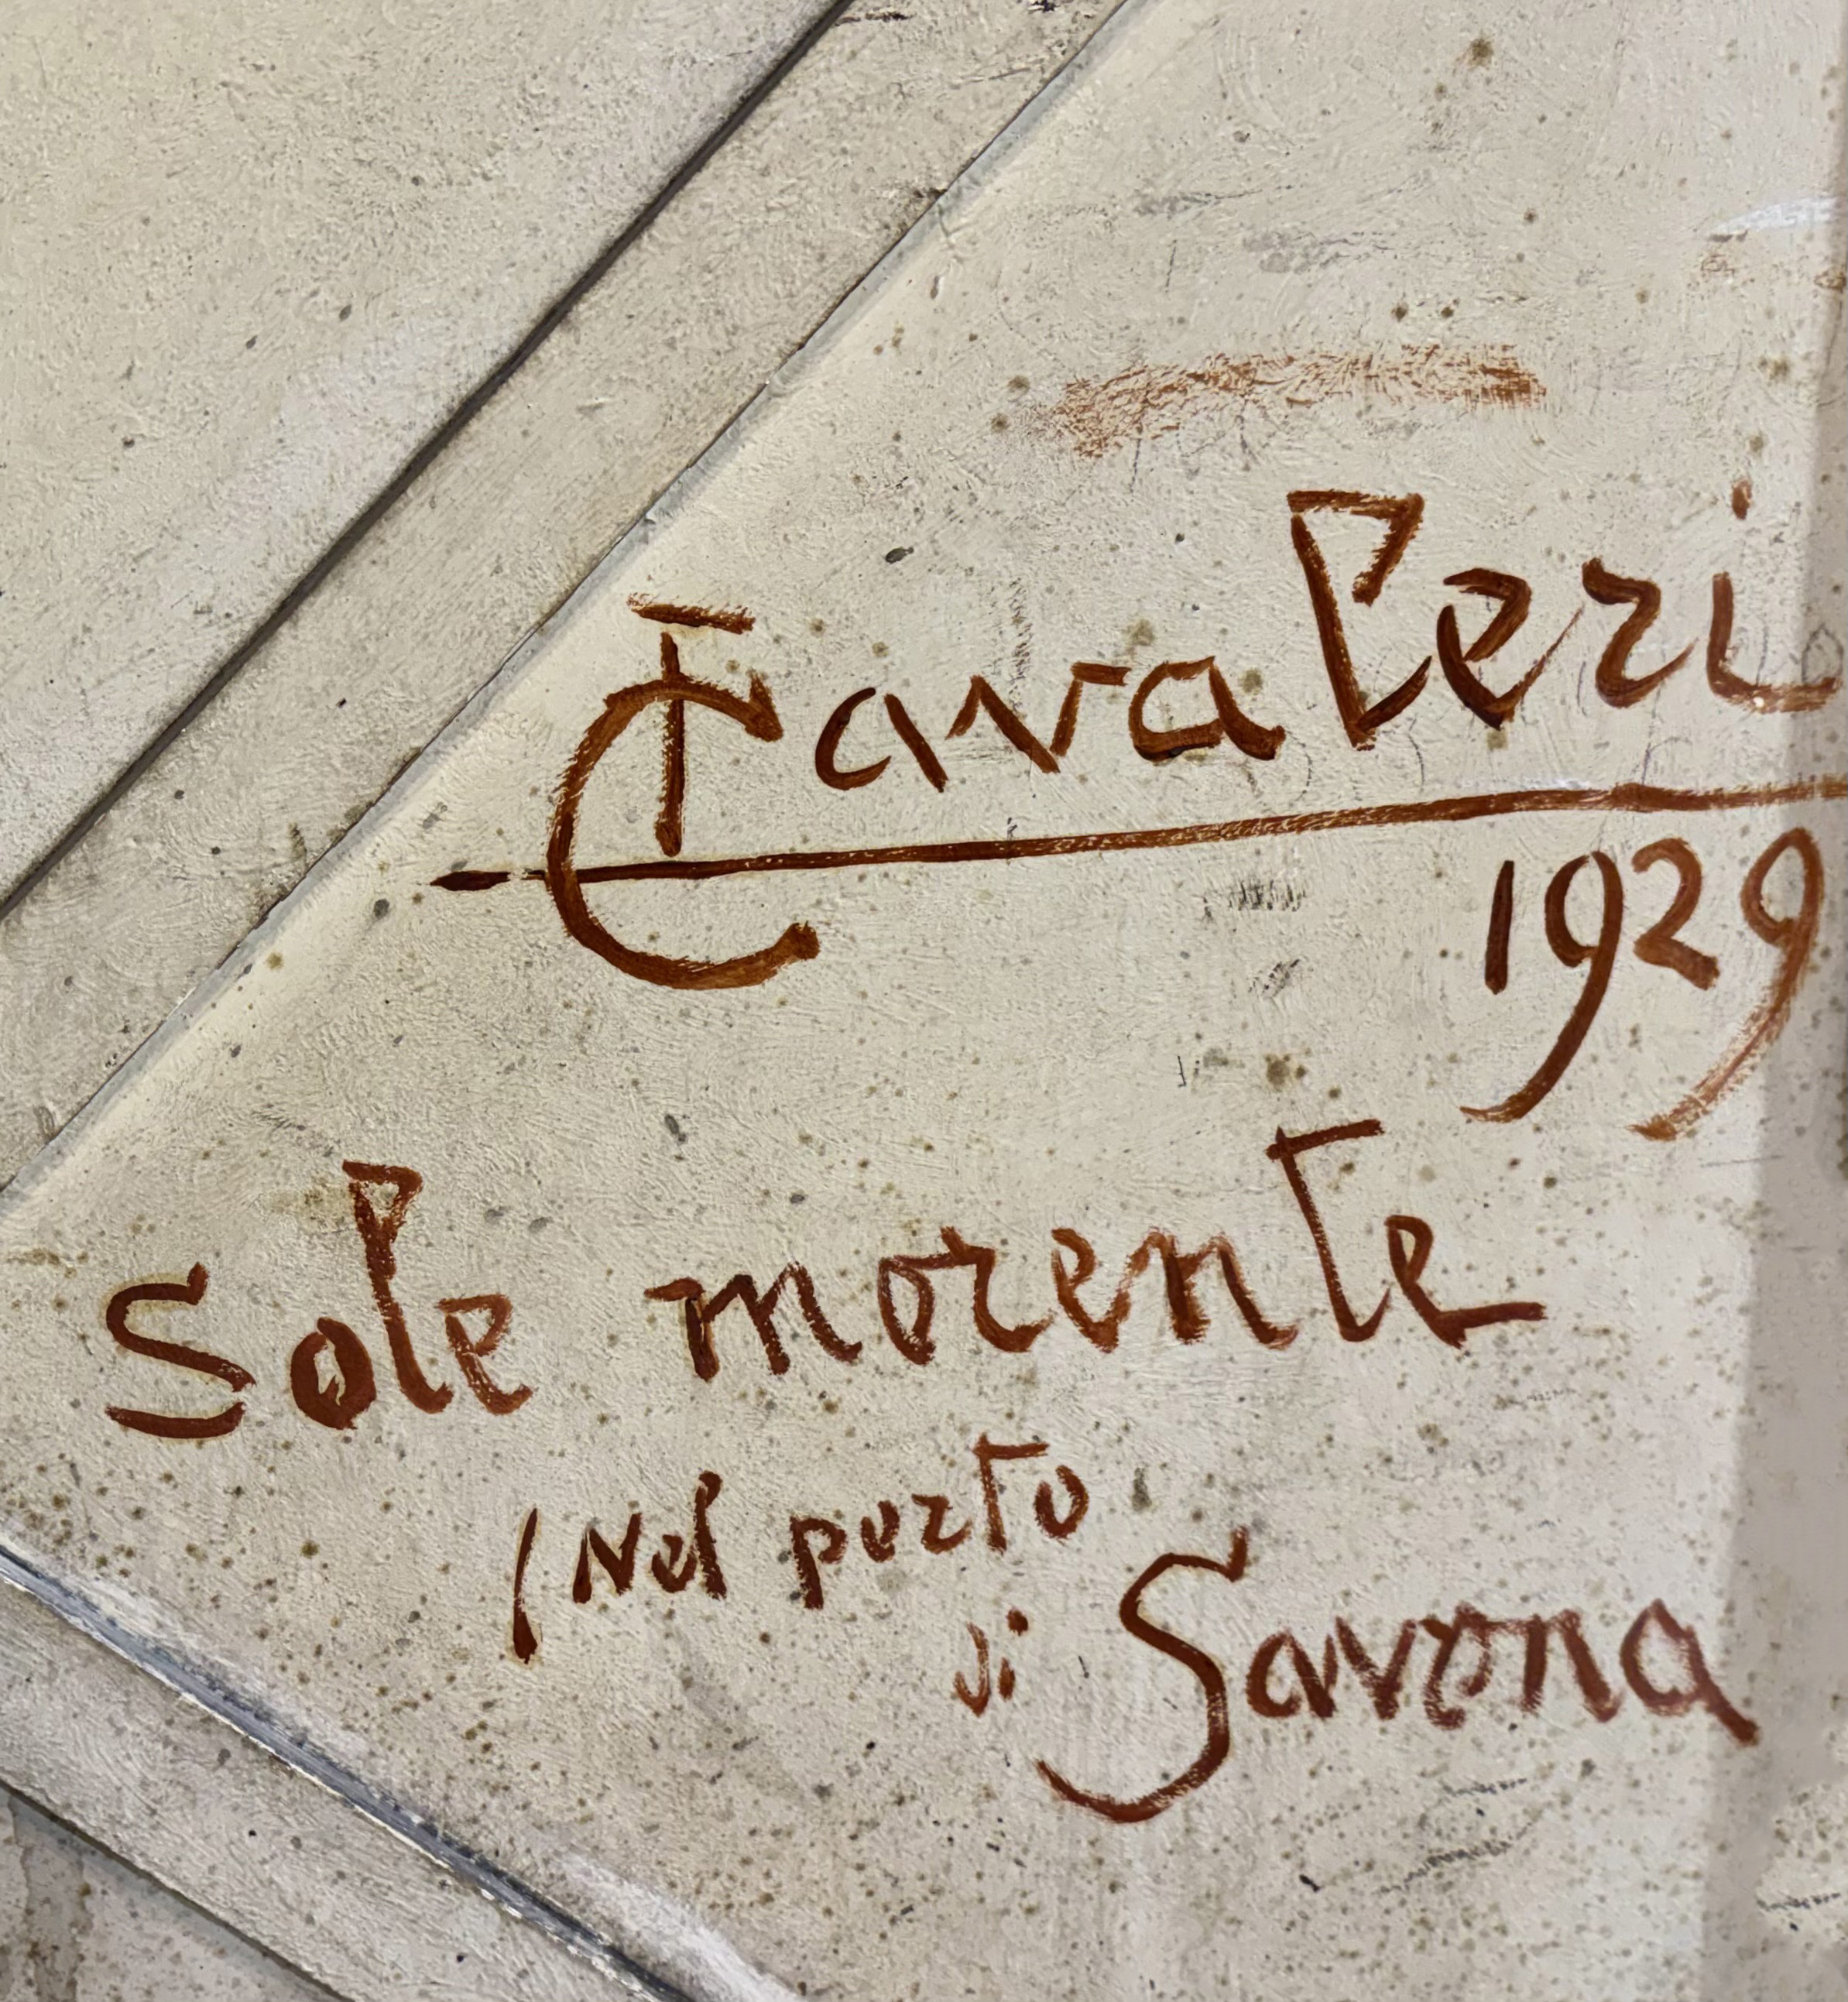 Cavaleri
1929
Sole morente
(Nel porto
di Savona